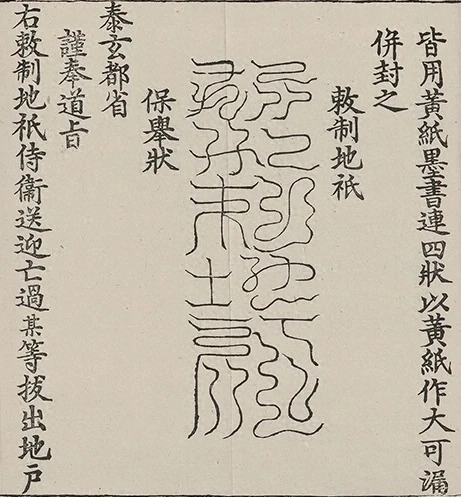 皆用黃紙墨書連四狀以黃紙作大可漏
併封之
敕制地祇
保舉狀
泰玄都省
謹奉道旨
右敕制地祇侍衞送迎亡過某等拔出地戶